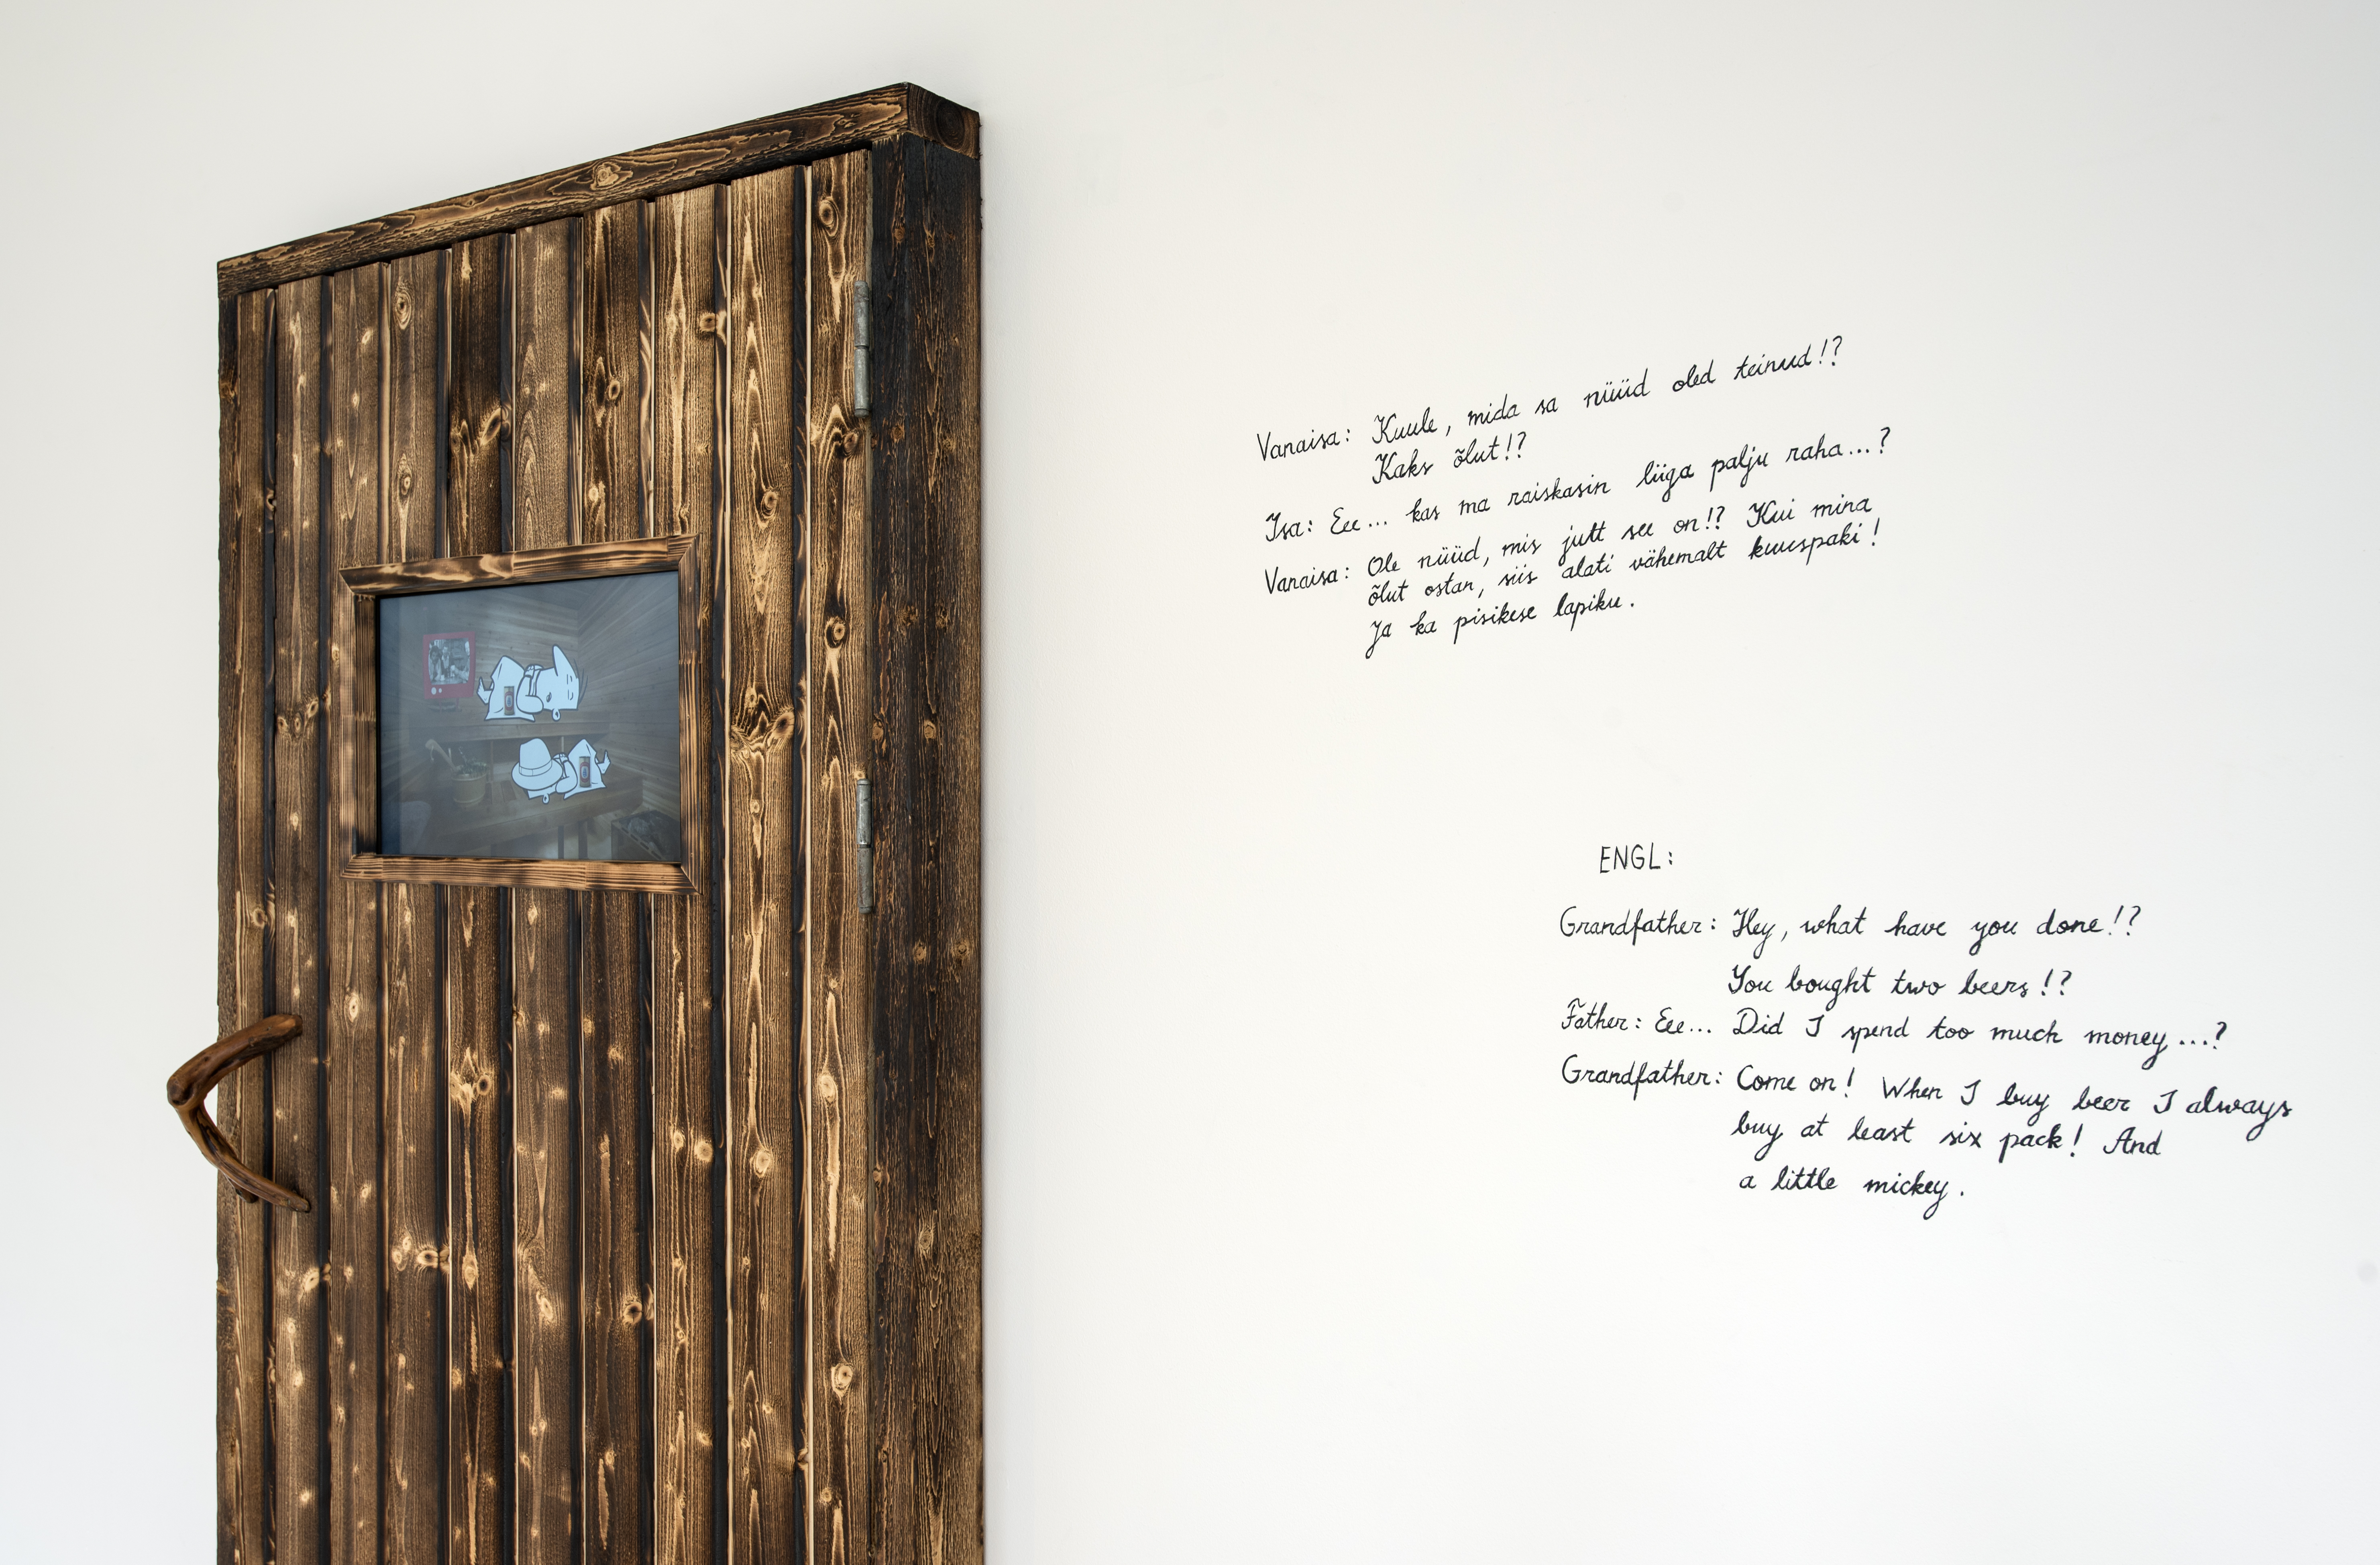 Vanaisa: Kuule, mida sa nüüd oled teinud!?
Kaks õlut!?
Isa: Eee... kas ma raiskasin liiga palju raha...?
Vanaisa: Ole nüüd, mis jutt see on!? Kui mina
õlut ostan, siis alati vähemalt kuuspaki!
Ja ka pisikese lapiku.
ENGL:
Grandfather: Hey, what have you done!?
You bought two beers!?
Father: Eee... Did I spend too much money...?
Grandfather: Come on! When I buy beer I always
buy at least six pack! And
a little mickey.